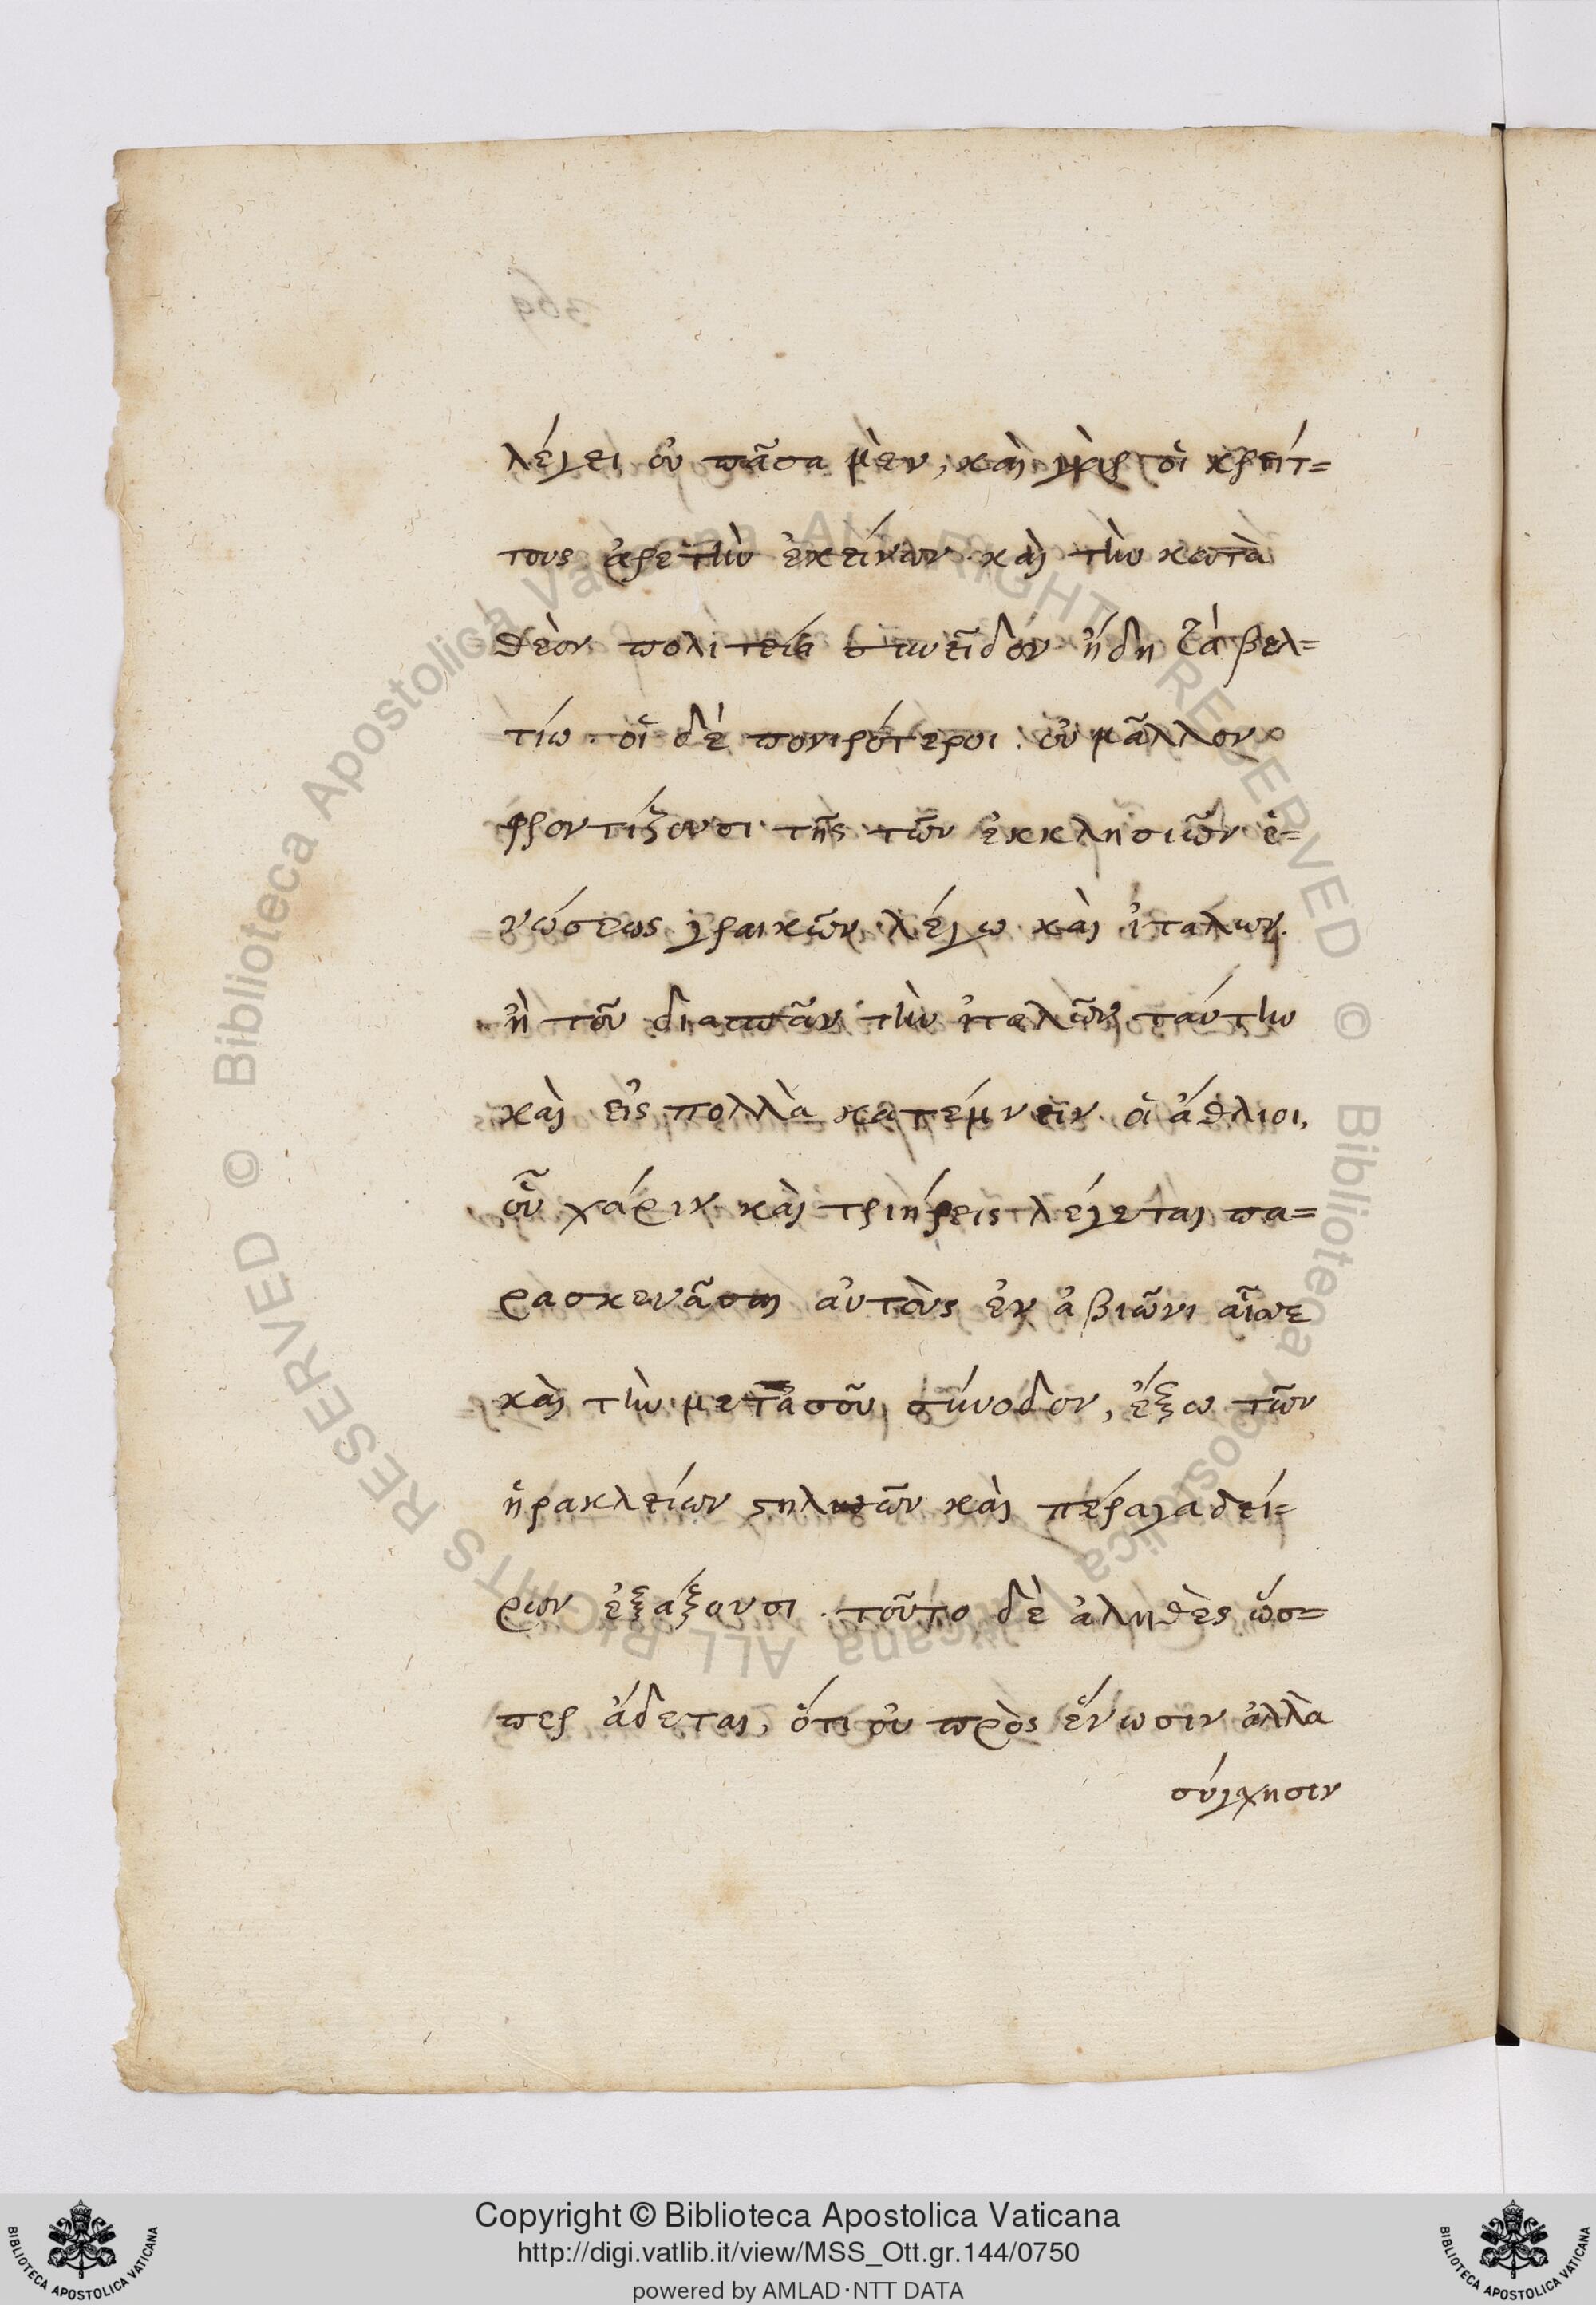 λέγει οὐ πᾶσα μὲν, καὶ γὰρ τοὶ κρείτ=
τους ἀρετὴν ἐκείνων καὶ τὴν κατὰ
θεὸν πολιτεία συνεῖδόν ἤδη τὰ βελ=
τίω οἱ δὲ πονιρότεροι. οὐ μᾶλλον
φροντίζουσι τῆς τῶν ἐκκλησιῶν ἑ=
νώσεως γραικῶν λέγω καὶ ἰταλων.
ἢ τοῦ διασπᾶν τὴν ἰταλῶν ταύτην
καὶ εἰς πολλὰ κατέμνειν οἱ ἄθλιοι,
οὗ χάριν καὶ τριήρεις λέγεται πα=
ρασκευᾶσαι αὐτοὺς ἐν ἀβιῶνι αἵ σε
καὶ τὴν μετὰ σοῦ σύνοδον, ἔξω τῶν
ἡρακλείων στηλῶν καὶ πέρα γαδεί=
ρων ἐξάξουσι. τοῦτο δὲ ἀληθὲς ὥσ=
περ ἄδεται, ὅτι οὐ πρὸς ἕνωσιν ἀλλὰ
σύγχησιν
369
Copyright © Biblioteca Apostolica Vaticana
http://digi.vatlib.it/view/MSS_Ott.gr.144/0750
powered by AMLAD·NTT DATA
BIBLIOTECA APOSTOLICA VATICANA
BIBLIOTECA APOSTOLICA VATICANA
© Biblioteca Apostolica Vaticana ALL RIGHTS RESERVED © Biblioteca Apostolica Vaticana ALL RIGHTS RESERVED